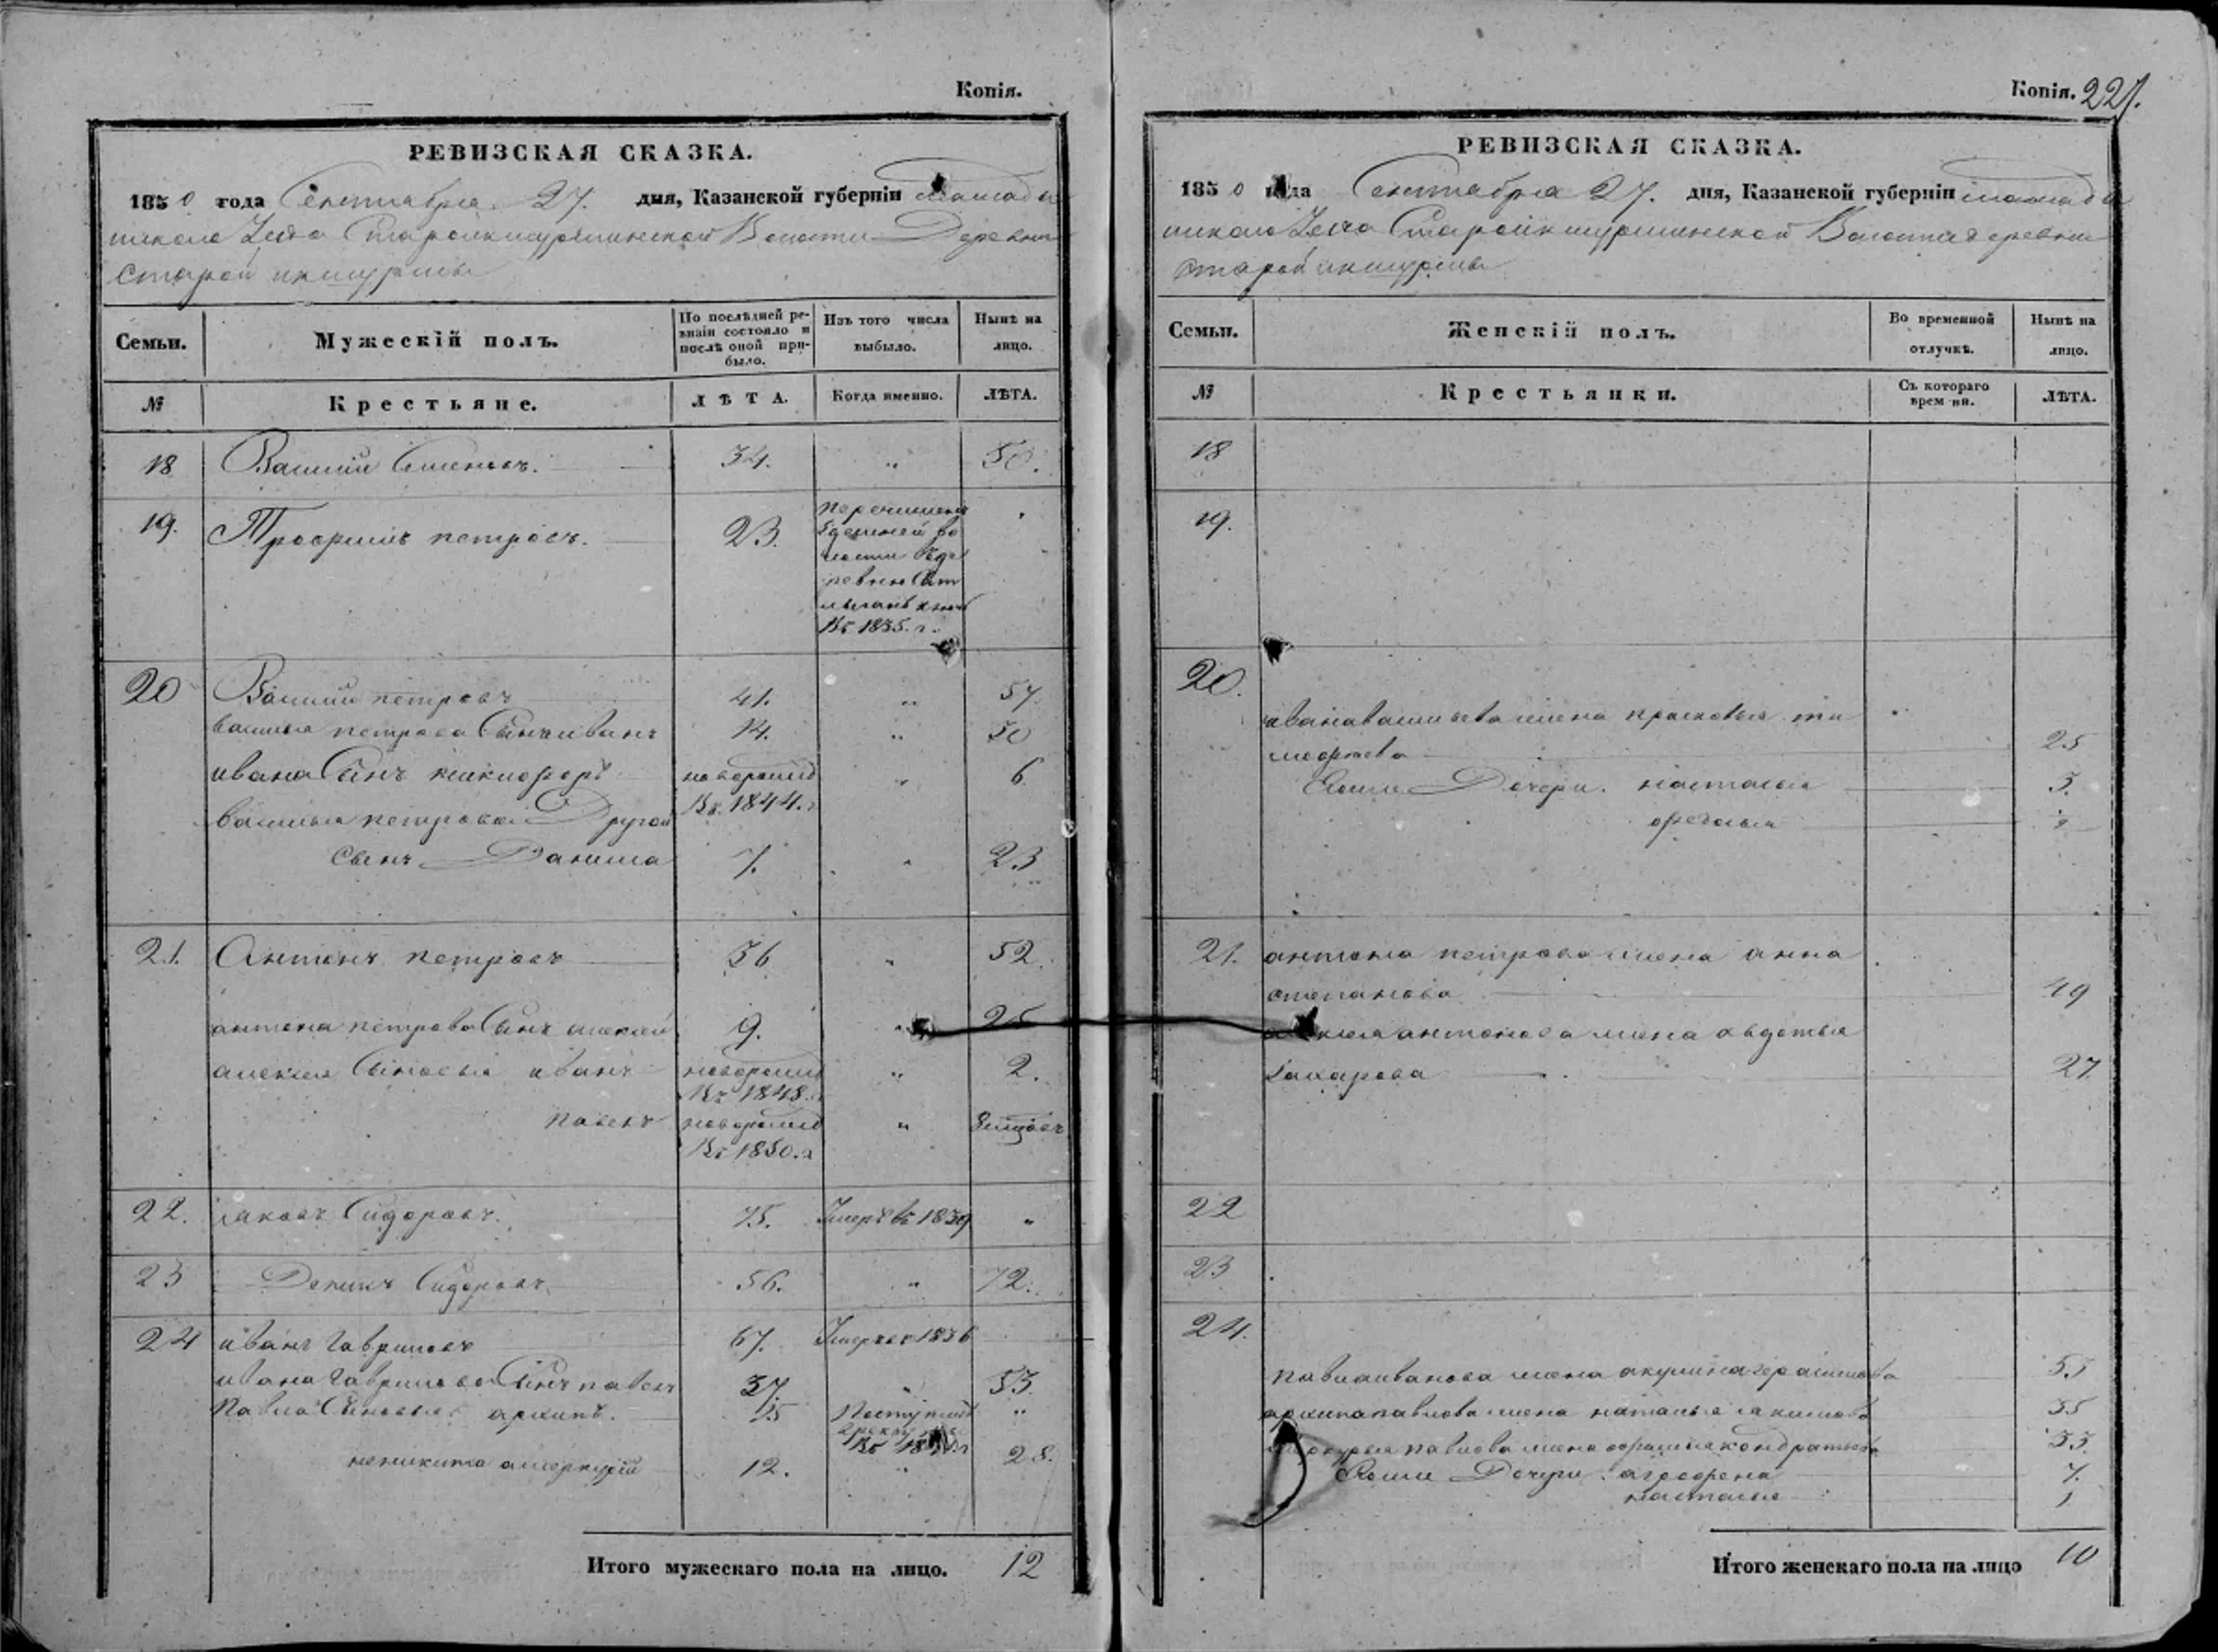 Копія.
РЕВИЗСКАЯ СКАЗКА.
1850 года Сентября 27. дня, Казанской губерніи Мамады
шскаго Уезда Староикшурминской Волости Деревни
Старой икшурмы
Семьи. Мужескій полъ. По послѣдней ре-визіи состояло и послѣ оной при-было. Изъ того числа выбыло. Нынѣ на лицо.
№ Крестьяне. ЛѢТА. Когда именно. ЛѢТА.
18 Василий Семеновъ. 34. " 50.
19. Трофимъ петровъ. 23. перечисленъ
здешней во
лости въ де
ревню
въ 1835. г.
20 Василий петровъ 41. " 57
василья петрова Сынъ иванъ 14. " 30
ивана Сынъ никифоръ новорожд " 6
въ 1844. г
василья петрова Другой
Сынъ Данила 7. " 23
21. Антонъ петровъ 36 " 52.
антона петрова Сынъ алексей 9. " 25
алексея Сыновья иванъ новорожд " 2.
въ 1848. г
павелъ новорожд "
въ 1850. г
22. яковъ Сидоровъ. 75. Умеръ въ 1839 "
23 Сидоровъ. 56. " 72.
24 иванъ гавриловъ 67. Умеръ въ 1836
ивана гаврилова Сынъ павелъ 37. " 53
павла Сыновья архипъ. 15 поступилъ "
в рекруты
въ
меркурій 12. " 28.
Итого мужескаго пола на лицо. 12
Копія. 221.
РЕВИЗСКАЯ СКАЗКА.
1850 года Сентября 27. дня, Казанской губерніи мамады
шскаго Уезда Староикшурминской Волости деревни
Старой икшурмы
Семьи. Женскій полъ. Во временной отлучкѣ. Нынѣ на лицо.
№ Крестьянки. Съ котораго врем ни. ЛѢТА.
18
19.
20.
ивана васильева жена прасковья ти
мофеева 25
Его дочери. наталья 3.
21. антона петрова жена анна
степанова 49
алексея антонова жена авдотья
захарова 27
22
23
24.
павла иванова жена акулина герасимова 53
архипа павлова жена наталья якимова 35
меркурья павлова жена кондратьева 33
Его дочери. аграфена 7.
наталья 1
Итого женскаго пола на лицо 10